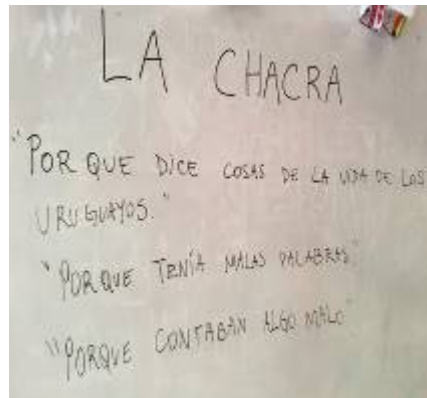 LA CHACRA
"POR QUE DICE COSAS DE LA VIDA DE LOS
URUGUAYOS."
"PORQUE TENÍA MALAS PALABRAS"
"PORQUE CONTABAN ALGO MALO"